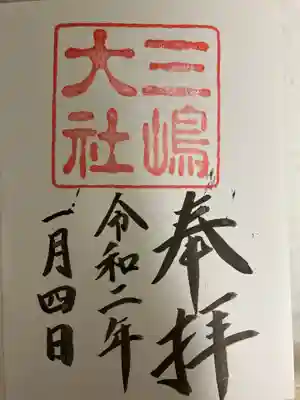 三嶋
大社
奉拝
令和二年
一月四日